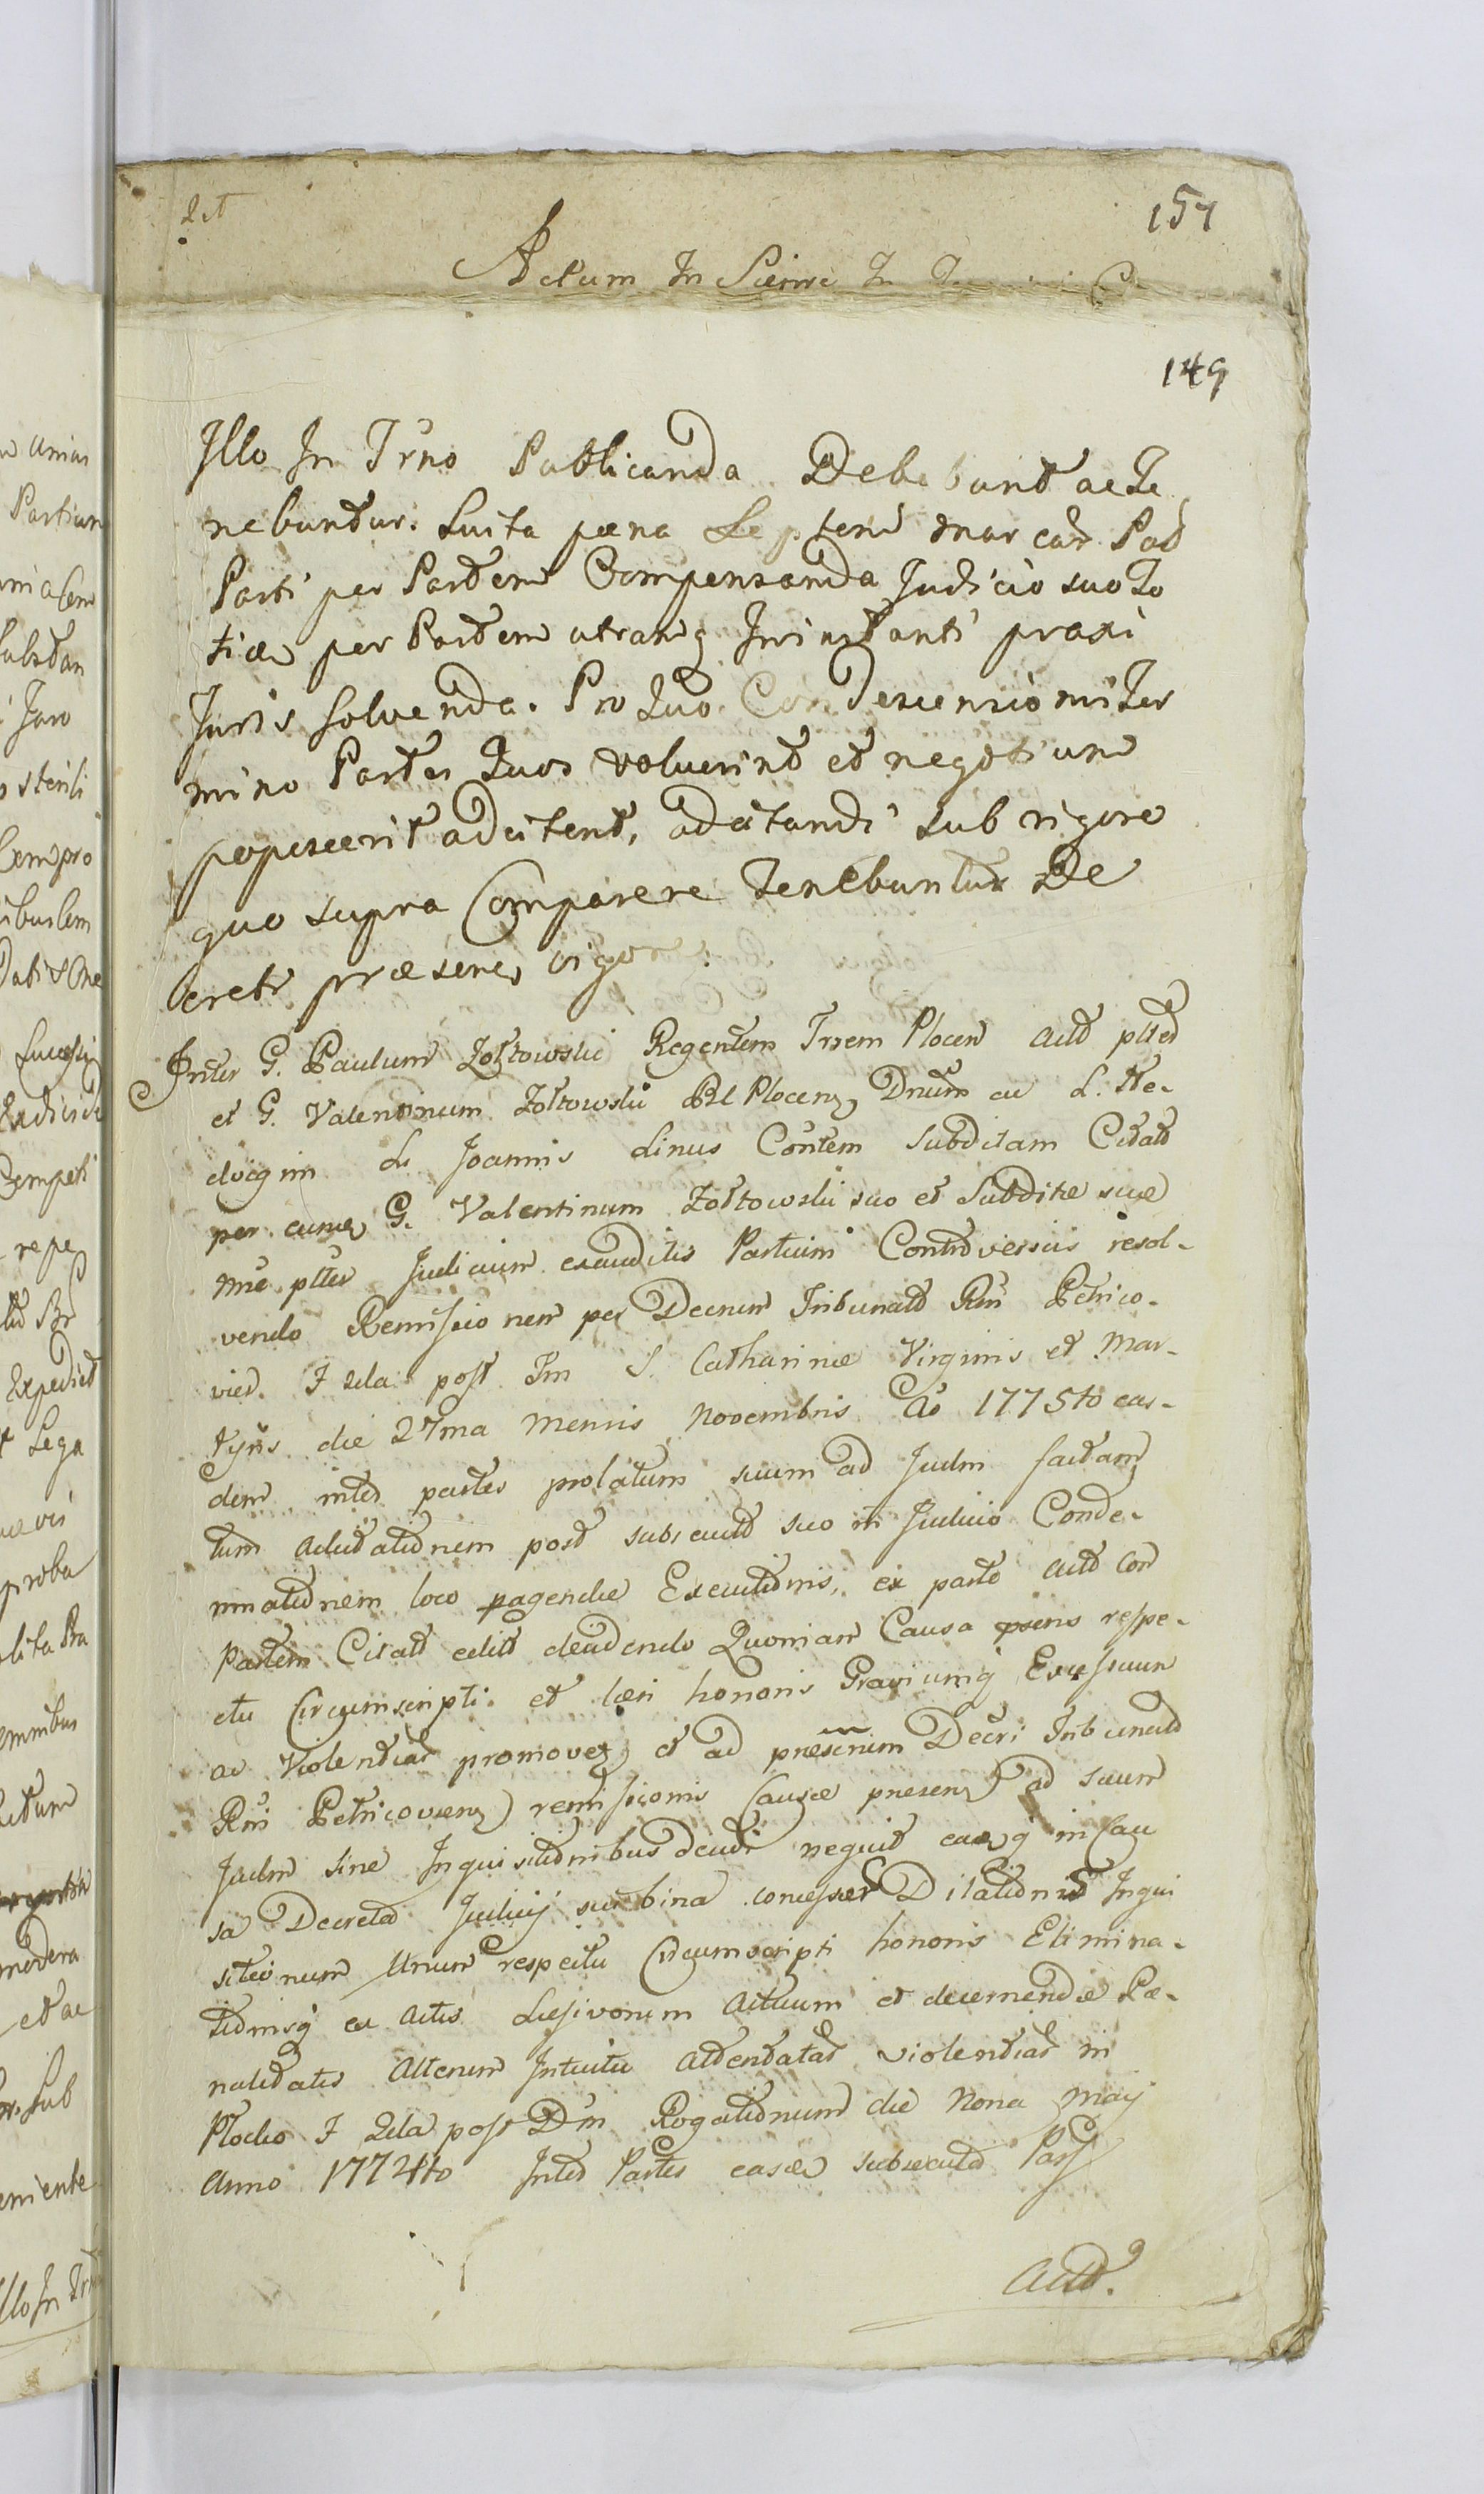 157
Actum In Sierpc In
149
Illo In Trno Publicanda Debebunt ac Te
nebuntur. Luita pæna Septem marcar Pol
Parti per Partem Compensanda Judicio suo To
ties per Partem utramq Inrinstanti praxi
Juris solvenda. Pro Quo Condescensionis Ter
mino Partes Quos voluerint et negotium
poposcerit adcitent, adcitandi sub rigore
quo supra Comparere Tenebuntur De
creti præsens vigore.
Inter G. Paulum Zołtowski Regentem Trrem Plocen Actt pltes
et G. Valentinum Zołtowski BR Plocens Dnum ac L. He-
dvigim L. Joannis Linus Contem Subditam Citatt
per eume G. Valentinum Zołtowski suo et Subditæ suæ
nne pltes Judicium exauditis Partium Controversiis resol-
vendo Remissionem per Decrum Tribunalt Rni Petrico-
vien. F 2da post Fm S. Catharinæ Virginis et Mar-
tyris die 27ma Mensis Novembris Ao 1775to eas-
dem inter partes prolatum suum ad Judm factam
tum Actutationem post subsecutt suo in Judicio Conde-
mnationem loco pagendæ Executionis, ex parte Actt Con
Partem Citatt edito deudendo Quoniam Causa prsens respe-
ctu Circumscripti et læsi honoris Graviumq Excessuum
ac Violentiar promovet et ad præsenim Decri Tribunalt
Rni Petricoviens remissionis Causæ presens ad suum
Judm sine Inquisitionibus deudi nequit eaeq in Cau
sa Decreto Judicij sui bina concesser Dilationis Inqui
sitionum Unum respectu Circumscripti honoris Elimina-
tionisq ex Actis Læsivorum Actuum et decernendæ Pæ-
nalitatis Alterum Intuitu Attentatar violentiar in
Plocko F 2da post Dm Rogationum die Nona Maij
Anno 1774to Inter Partes easde subsecuta Pars
Actt.